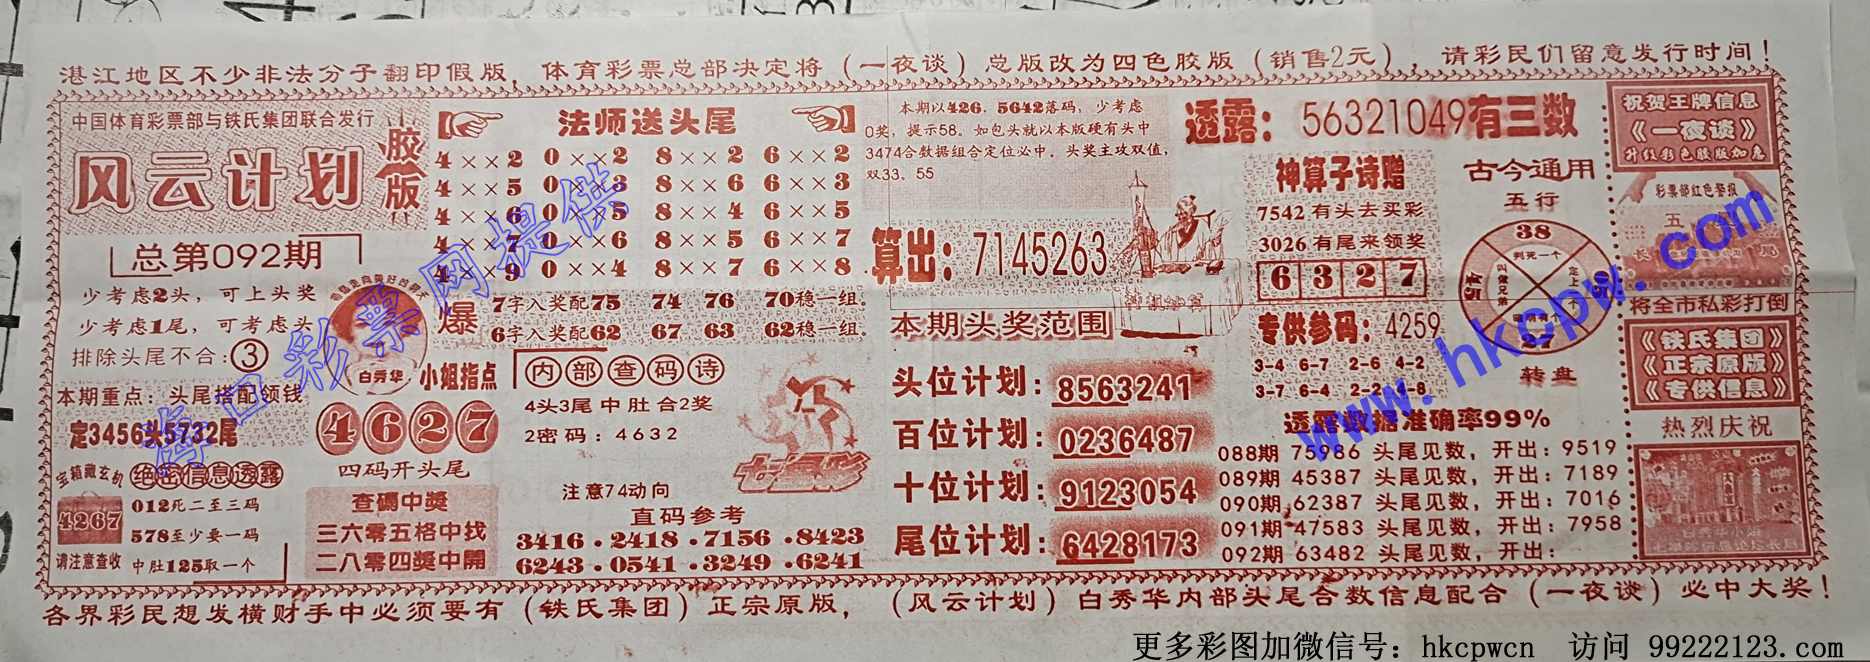 湛江地区不少非法分子翻印假版，体育彩票总部决定将（一夜谈）总版改为四色胶版（销售2元），请彩民们留意发行时间！
中国体育彩票部与铁氏集团联合发行
风云计划
胶版
总第092期
少考虑2头，可上头奖
少考虑1尾，可考虑头
排除头尾不合：③
本期重点：头尾搭配领钱
定3456头5732尾
宝箱藏玄机
绝密信息透露
4267
012死二至三码
578至少要一码
请注意查收
中肚125取一个
法师送头尾
4××2 0××2 8××2 6××2
4××5 0××3 8××6 6××3
4××6 0××5 8××4 6××5
4××7 0××6 8××5 6××7
4××9 0××4 8××7 6××8
爆
7字入奖配75 74 76 70稳一组。
6字入奖配62 67 63 62稳一组。
白秀华
小姐指点
4627
四码开头尾
查碼中獎
三六零五格中找
二八零四獎中開
内部查码诗
4头3尾中肚合2奖
2密码：4632
七星彩
注意74动向
直码参考
3416.2418.7156.8423
6243.0541.3249.6241
本期以426．5642落码，少考虑
0奖，提示58。如包头就以本版硬有头中
3474合数据组合定位必中。头奖主攻双值，
双33、55
算出：7145263
本期头奖范围
头位计划：8563241
百位计划：0236487
十位计划：9123054
尾位计划：6428173
透露：56321049有三数
神算子诗赠
7542有头去买彩
3026有尾来领奖
6327
专供参码：4259
3-4 6-7 2-6 4-2
3-7 6-4 2-2 4-8
古今通用
五行
38
判死一个
转盘
透露数据准确率99%
088期 75986 头尾见数，开出：9519
089期 45387 头尾见数，开出：7189
090期 62387 头尾见数，开出：7016
091期 47583 头尾见数，开出：7958
092期 63482 头尾见数，开出：
祝贺王牌信息
《一夜谈》
升级彩色胶版加急
彩票部红色警报
将全市私彩打倒
《铁氏集团》
《正宗原版》
《专供信息》
热烈庆祝
各界彩民想发横财手中必须要有（铁氏集团）正宗原版，（风云计划）白秀华内部头尾合数信息配合（一夜谈）必中大奖！
海口彩票网提供
www.hkcpw.com
更多彩图加微信号：hkcpwcn 访问 99222123.com